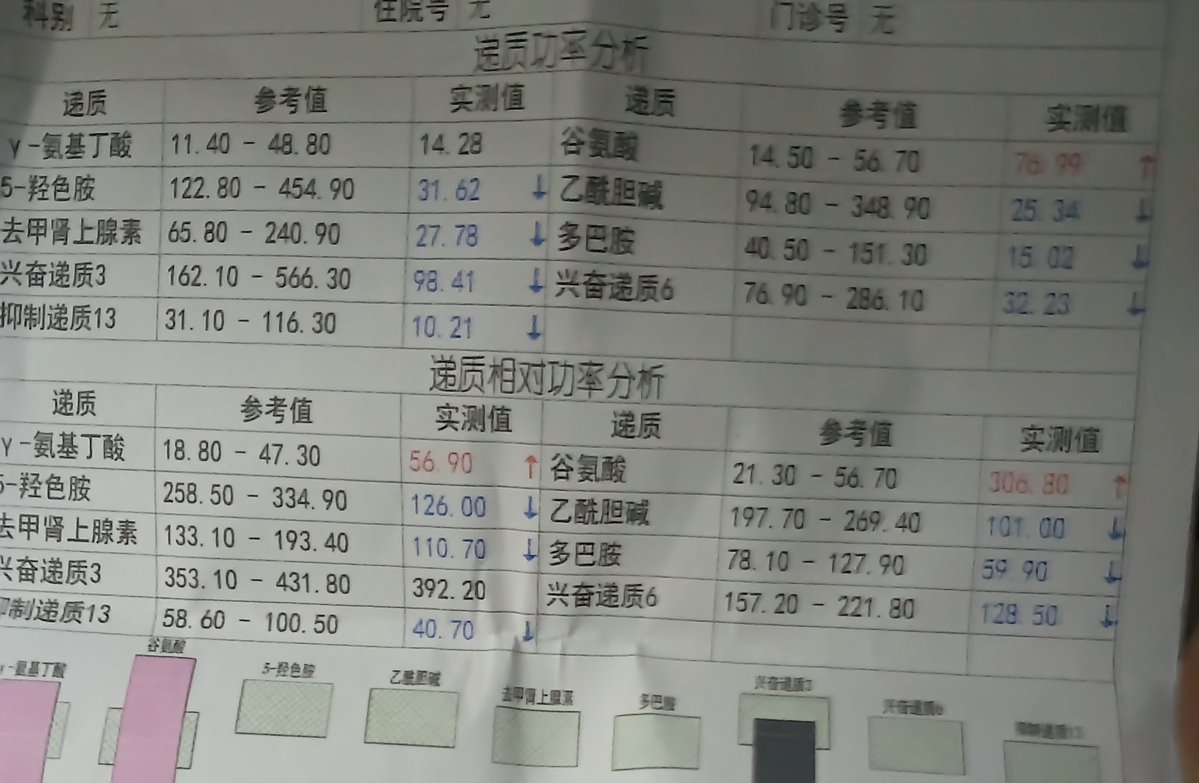 科别 无 住院号 无 门诊号 无
递质功率分析
递质 参考值 实测值 递质 参考值 实测值
γ-氨基丁酸 11.40 - 48.80 14.28 谷氨酸 14.50 - 56.70 76.99 ↑
5-羟色胺 122.80 - 454.90 31.62 ↓ 乙酰胆碱 94.80 - 348.90 25.34 ↓
去甲肾上腺素 65.80 - 240.90 27.78 ↓ 多巴胺 40.50 - 151.30 15.02 ↓
兴奋递质3 162.10 - 566.30 98.41 ↓ 兴奋递质6 76.90 - 286.10 32.23 ↓
抑制递质13 31.10 - 116.30 10.21 ↓
递质相对功率分析
递质 参考值 实测值 递质 参考值 实测值
γ-氨基丁酸 18.80 - 47.30 56.90 ↑ 谷氨酸 21.30 - 56.70 306.80 ↑
5-羟色胺 258.50 - 334.90 126.00 ↓ 乙酰胆碱 197.70 - 269.40 101.00 ↓
去甲肾上腺素 133.10 - 193.40 110.70 ↓ 多巴胺 78.10 - 127.90 59.90 ↓
兴奋递质3 353.10 - 431.80 392.20 兴奋递质6 157.20 - 221.80 128.50 ↓
抑制递质13 58.60 - 100.50 40.70 ↓
γ-氨基丁酸 谷氨酸 5-羟色胺 乙酰胆碱 去甲肾上腺素 多巴胺 兴奋递质3 兴奋递质6 抑制递质13